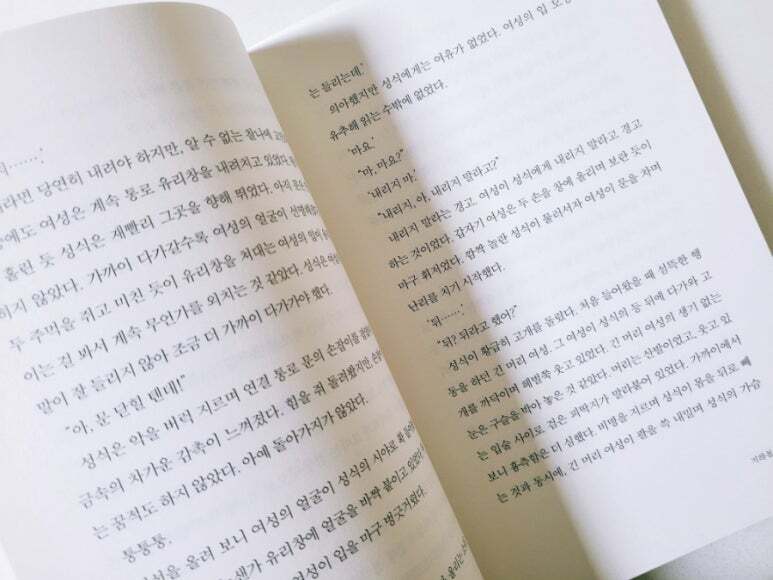 식…….'
라면 당연히 내려야 하지만, 알 수 없는 찰나에
에도 여성은 계속 통로 유리창을 내려치고 있었다.
홀린 듯 성식은 재빨리 그곳을 향해 뛰었다. 아직
하지 않았다. 가까이 다가갈수록 여성의 얼굴이
두 주먹을 쥐고 미친 듯이 유리창을 쳐대는 여성의
이는 걸 봐서 계속 무언가를 외치는 것 같았다. 성식은
말이 잘 들리지 않아 조금 더 가까이 다가가야 했다.
"아, 문 닫힐 텐데!"
성식은 악을 버럭 지르며 연결 통로 문의 손잡이를
금속의 차가운 감촉이 느껴졌다. 힘을 줘 돌려봤지만,
는 꿈쩍도 하지 않았다. 아예 돌아가지가 않았다.
퉁퉁퉁.
을 올려 보니 여성의 얼굴이 성식의 시야로 확
유리창에 얼굴을 바짝 붙이고 있었다.
여성이 입을 마구 벙긋거렸다.
는 들리는데.'
의아했지만 성식에게는 여유가 없었다. 여성의 입
유추해 읽는 수밖에 없었다.
'마요.'
"마, 마요?"
'내리지 마.'
"내리지, 아, 내리지 말라고?"
내리지 말라는 경고. 여성이 성식에게 내리지 말라고 경고
하는 것이었다. 갑자기 여성은 두 손을 창에 올리며 보란 듯이
마구 휘저었다. 깜짝 놀란 성식이 물러서자 여성이 문을 차며
난리를 치기 시작했다.
'뒤…….'
"뒤? 뒤라고 했어?"
성식이 황급히 고개를 돌렸다. 처음 들어왔을 때 섬뜩한 행
동을 하던 긴 머리 여성. 그 여성이 성식의 등 뒤에 다가와 고
개를 까다이며 해발쭉 웃고 있었다. 긴 머리 여성의 생기 없는
눈은 구슬을 박아 놓은 것 같았다. 머리는 산발이었고, 웃고 있
는 입술 사이로 검은 피딱지가 말라붙어 있었다. 가까이에서
보니 흉측함은 더 심했다. 비명을 지르며 성식이 몸을 뒤로 빼
는 것과 동시에, 긴 머리 여성이 팔을 쑥 내밀며 성식의 가슴